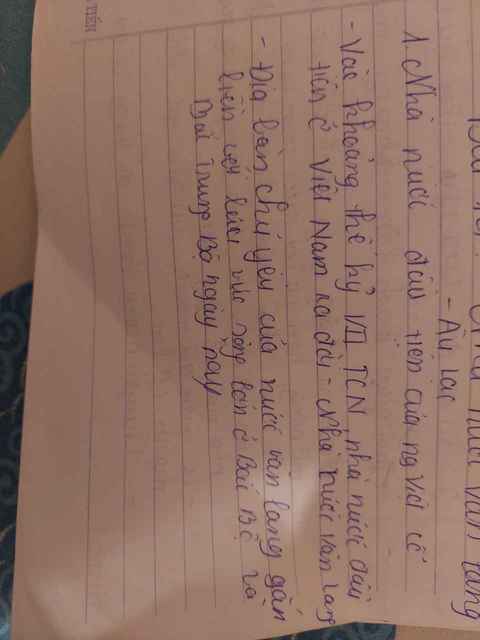 Nhà nước Văn Lang
- Âu Lạc
1. Nhà nước đầu tiên của ng Việt cổ
- Vào khoảng thế kỷ VII TCN nhà nước đầu
tiên ở Việt Nam ra đời - Nhà nước Văn Lang
- Địa bàn chủ yếu của nước Văn Lang gắn
liền với lưu vực sông lớn ở Bắc Bộ và
Bắc Trung Bộ ngày nay
TIÊN